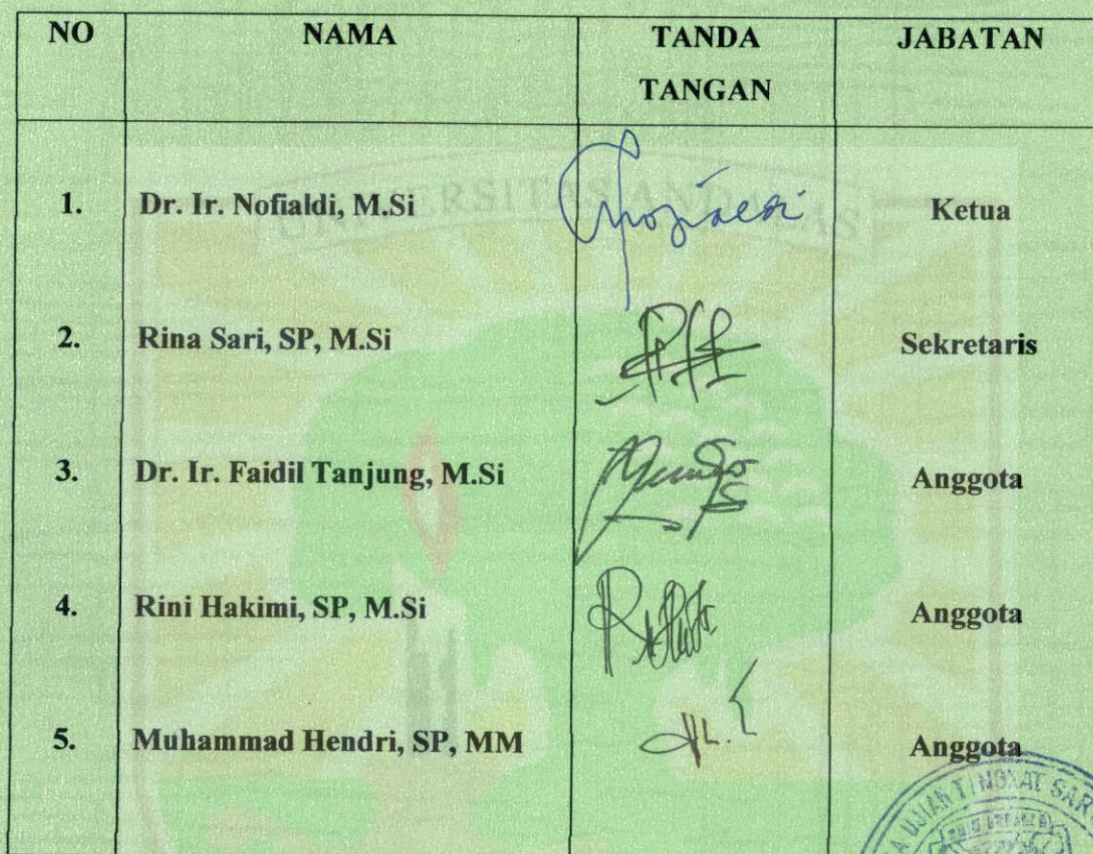 NO NAMA TANDA TANGAN JABATAN
1. Dr. Ir. Nofialdi, M.Si Ketua
2. Rina Sari, SP, M.Si Sekretaris
3. Dr. Ir. Faidil Tanjung, M.Si Anggota
4. Rini Hakimi, SP, M.Si Anggota
5. Muhammad Hendri, SP, MM Anggota
UNIVERSITAS ANDALAS
UJIAN TINGKAT